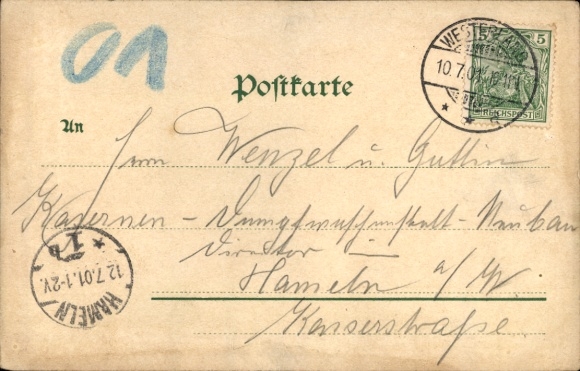 01
WESTERLAND
10.7.01
5
REICHSPOST
Postkarte
An
Herrn Wenzel u. Gattin
Kasernen - Dampfwaschanstalt - Neubau
Director
Hameln a/W.
Kaiserstrasse.
1b
12.7.01.1-2V.
HAMELN